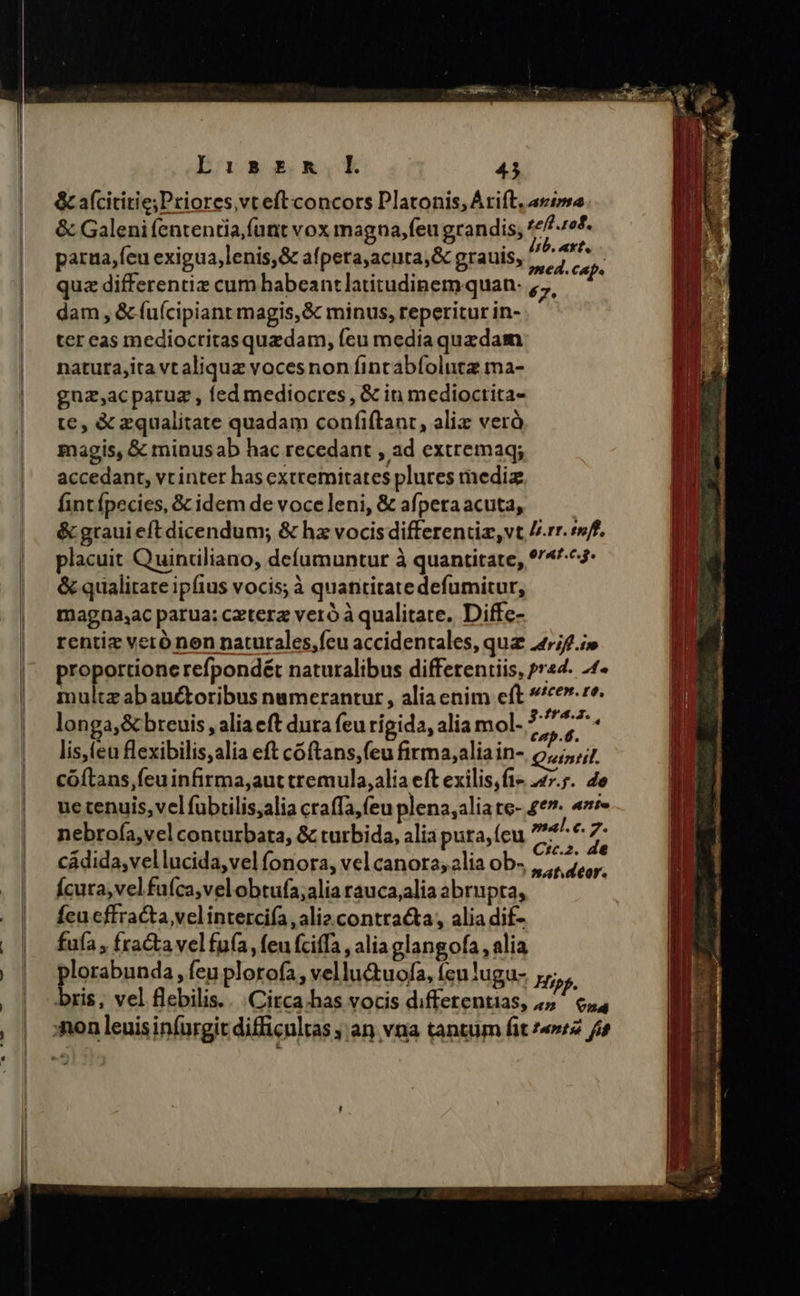 LIBER I. 43
& aſcititię; Priores, vt eſt concors Platonis, Ariſt. anima
& Galeni ſententia, ſunt vox magna, ſeu grandis, teſt. 108.
parua, ſeu exigua, lenis, & aſpera, acuta, & grauis, lib. art.
med. cap.
quæ differentiæ cum habeant latitudinem quan- 67.
dam, & ſuſcipiant magis, & minus, reperitur in-
ter eas mediocritas quædam, ſeu media quædam
natura, ita vt aliquæ voces non ſint abſolutæ ma-
gnæ, ac paruæ, ſed mediocres, & in mediocrita-
te, & æqualitate quadam conſiſtant, aliæ verò
magis, & minus ab hac recedant, ad extremaq;
accedant, vt inter has extremitates plures mediæ
ſint ſpecies, & idem de voce leni, & aſpera acuta,
& graui eſt dicendum; & hæ vocis differentiæ, vt li. 11. inſt.
placuit Quintiliano, deſumuntur à quantitate, orat. c. 3.
& qualitate ipſius vocis; à quantitate deſumitur,
magna, ac parua: cæteræ verò à qualitate. Diffe-
rentiæ verò non naturales, ſeu accidentales, quæ Ariſt. in
proportione reſpondét naturalibus differentiis, præd. A.
multæ ab auctoribus numerantur, alia enim eſt uicen. 10.
longa, & breuis, alia eſt dura ſeu rigida, alia mol- 3. tra. 2.
cap. 6.
lis, ſeu flexibilis, alia eſt cóſtans, ſeu firma, alia in- Quintil.
cóſtans, ſeu infirma, aut tremula, alia eſt exilis, ſi- Ar. 5. de
ue tenuis, vel ſubtilis, alia craſſa, ſeu plena, alia te- gen. ani-
nebroſa, vel conturbata, & turbida, alia pura, ſeu mal. c. 7.
Cic. 2. de
cádida, vel lucida, vel ſonora, vel canora, alia ob- nat. deor.
ſcura, vel fuſca, vel obtuſa; alia rauca, alia abrupta,
ſeu effracta, vel interciſa, alia contracta, alia dif-
fuſa, fracta vel fuſa, ſeu ſciſſa, alia glangoſa, alia
plorabunda, ſeu ploroſa, vel luctuoſa, ſeu lugu- Hipp.
bris, vel flebilis. Circa has vocis differentias, an una
non leuis inſurgit difficultas, an vna tantùm ſit tantú ſit